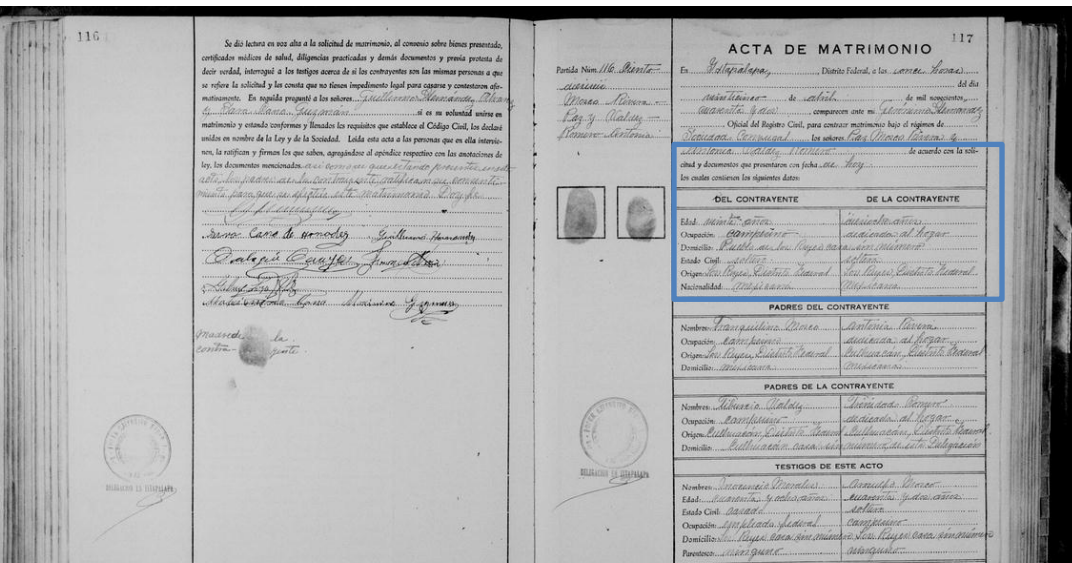 116
Se dió lectura en voz alta a la solicitud de matrimonio, al convenio sobre bienes presentado,
certificados médicos de salud, diligencias practicadas y demás documentos y previa protesta de
decir verdad, interrogué a los testigos acerca de si los contrayentes son las mismas personas a que
se refiere la solicitud y les consta que no tienen impedimento legal para casarse y contestaron afir-
mativamente. En seguida pregunté a los señores Guillermo Hernández
y si es su voluntad unirse en
matrimonio y estando conformes y llenados los requisitos que establece el Código Civil, los declaré
unidos en nombre de la Ley y de la Sociedad. Leída esta acta a las personas que en ella intervie-
nen, la ratifican y firman los que saben, agregándose al apéndice respectivo con las anotaciones de
ley, los documentos mencionados
acto, la madre de la contrayente
miento para que se efectúe este matrimonio. Doy fe
Guillermo Hernandez
madre de la
contra- yente.
DELEGACION DE IXTAPALAPA
Partida Núm. 116. Ciento
dieciseis
Moreo Rivera
Paz y Valdez
Romero Antonia
DELEGACION DE IXTAPALAPA
117
ACTA DE MATRIMONIO
En Ixtapalapa, Distrito Federal, a las once horas
del día
veinticinco de abril de mil novecientos
cuarenta y dos comparecen ante mí Hernandez
Oficial del Registro Civil, para contraer matrimonio bajo el régimen de
Sociedad Conyugal los señores Paz Moreo Rivera y
Antonia Valdez Romero de acuerdo con la soli-
citud y documentos que presentaron con fecha de hoy
los cuales contienen los siguientes datos:
DEL CONTRAYENTE DE LA CONTRAYENTE
Edad años dieciocho años
Ocupación campesino dedicada al hogar
Domicilio Pueblo de los Reyes casa sin número
Estado Civil soltero soltera
Origen Los Reyes, Distrito Federal Los Reyes, Distrito Federal
Nacionalidad mexicana mexicana
PADRES DEL CONTRAYENTE
Nombres Tranquilino Moreo Antonia Rivera
Ocupación campesino dedicada al hogar
Origen Los Reyes, Distrito Federal Culhuacán, Distrito Federal
Domicilio mexicana mexicana
PADRES DE LA CONTRAYENTE
Nombres Tiburcio Valdez Trinidad Romero
Ocupación campesino dedicada al hogar
Origen Culhuacán, Distrito Federal Culhuacán, Distrito Federal
Domicilio Culhuacán casa sin número de esta Delegación
TESTIGOS DE ESTE ACTO
Nombres Inocencio Morales Arnulfo Moreo
Edad cuarenta y ocho años cuarenta y dos años
Estado Civil casado soltero
Ocupación empleado federal campesino
Domicilio Los Reyes casa sin número Los Reyes casa sin número
Parentesco ninguno ninguno